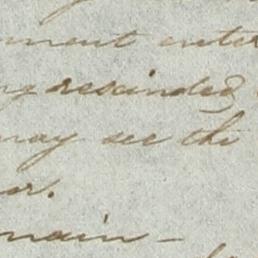 ment enter
ng rescinded
may see the
or.
main —